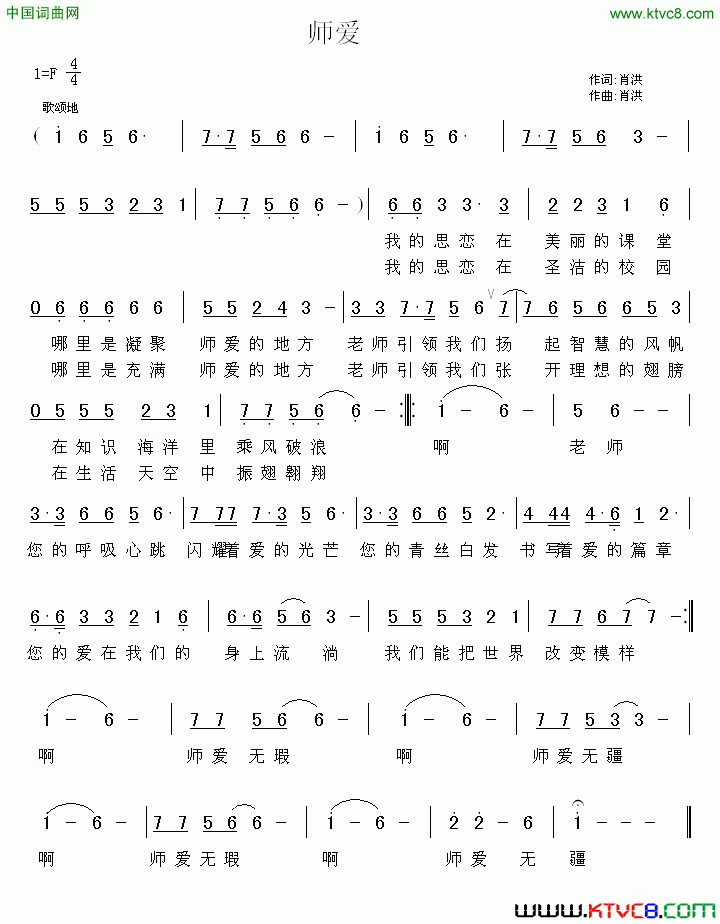 中国词曲网
www.ktvc8.com
师爱
1=F 4/4
作词:肖洪
作曲:肖洪
歌颂地
( 1 6 5 6· | 7·7 5 6 6 - | 1 6 5 6· | 7·7 5 6 3 - |
5 5 5 3 2 3 1 | 7·7 5 6 6 - ) | 6 6 3 3· 3 | 2 2 3 1 6 |
我的思恋在 美丽的课堂
我的思恋在 圣洁的校园
0 6 6 6 6 6 | 5 5 2 4 3 - | 3 3 7·7 5 6 7 | 7 6 5 6 6 5 3 |
哪里是凝聚 师爱的地方 老师引领我们扬 起智慧的风帆
哪里是充满 师爱的地方 老师引领我们张 开理想的翅膀
0 5 5 5 2 3 1 | 7 7 5 6 6 - :||: 1 - 6 - | 5 6 - - |
在知识 海洋 里 乘风破浪 啊 老 师
在生活 天空 中 振翅翱翔
3·3 6 6 5 3 2 | 7 77 7·3 5 6· | 3·3 6 6 5 2· | 4 44 4·6 1 2· |
您的呼吸心跳 闪耀着爱的光芒 您的青丝白发 书写着爱的篇章
6·6 3 3 2 1 6 | 6·6 5 6 3 - | 5 5 5 3 2 1 | 7 7 6 7 7 - :||
您的爱在我们的 身上流 淌 我们能把世界 改变模样
1 - 6 - | 7 7 5 6 6 - | 1 - 6 - | 7 7 5 3 3 - |
啊 师爱无瑕 啊 师爱无疆
1 - 6 - | 7 7 5 6 6 - | 1 - 6 - | 2 2 - 6 | 1 - - - ||
啊 师爱无瑕 啊 师爱 无 疆
www.KTVC8.com